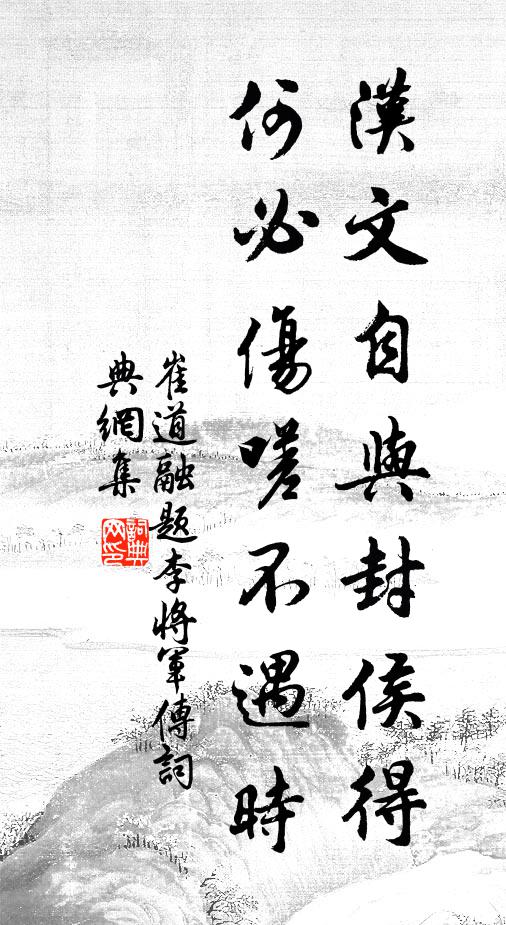 漢文自與封侯得
何必傷嗟不遇時
崔道融題李將軍傳詞
典網集
詞典網印